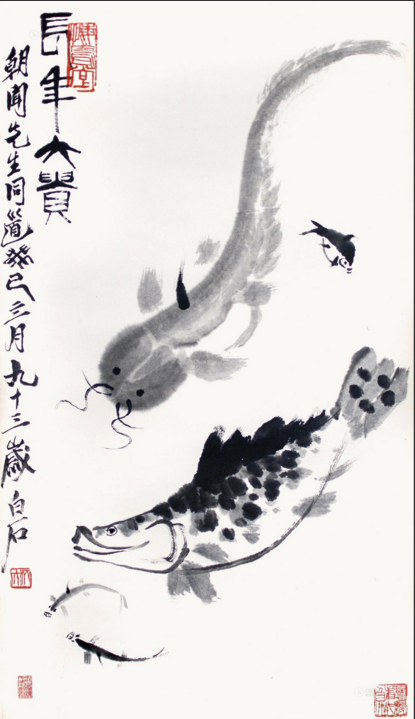 長年大貴
朝聞先生同鑑癸巳三月九十三歲白石